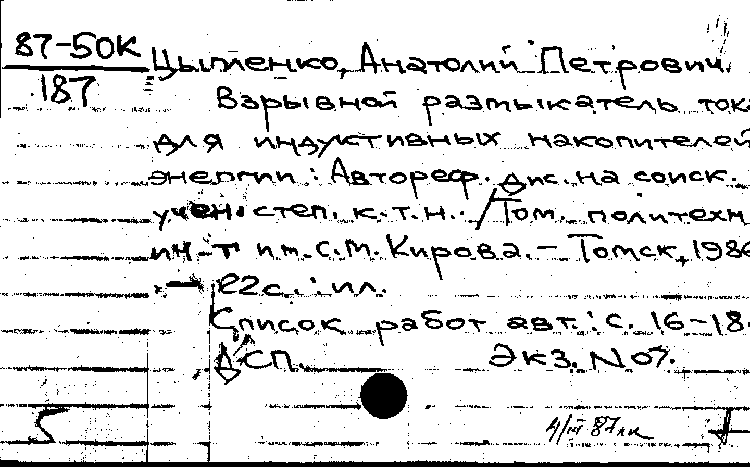 87-50К
187
Цыпленко, Анатолий Петрович.
Взрывной размыкатель тока
для индуктивных накопителей
энергии: Автореф. дис. на соиск.
учен. степ. к.т.н. /Том. политехн.
ин-т им. С.М. Кирова. – Томск, 1986
— 22с.: ил.
Список работ авт.: с. 16-18.
ДСП. Экз. № 07.
5
4/III 87